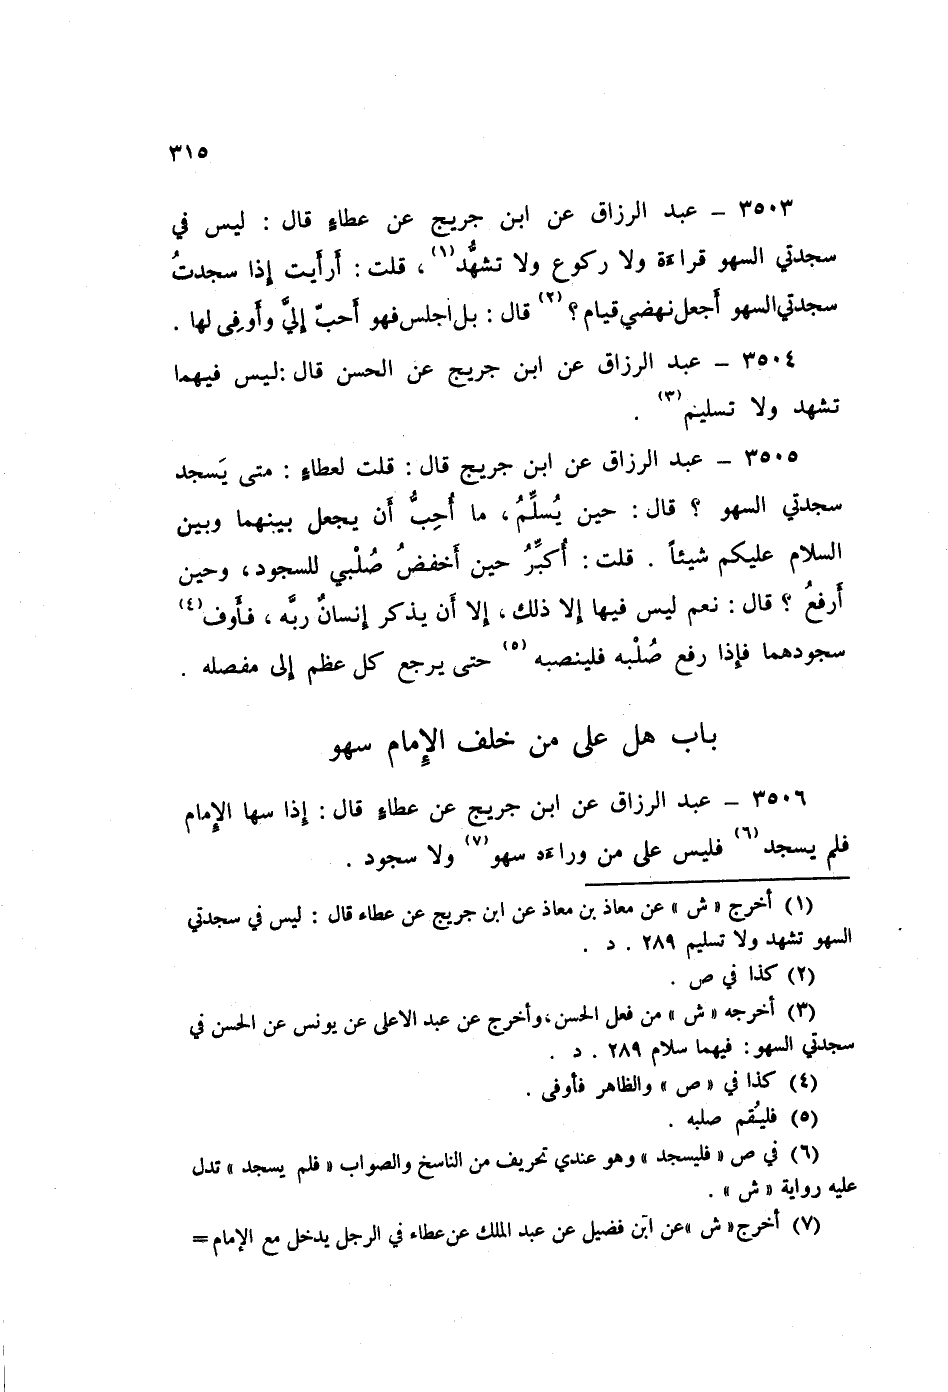 ٣١٥
٣٥٠٣ – عبد الرزاق عن ابن جريج عن عطاءٍ قال : ليس في
سجدتي السهو قراءة ولا ركوع ولا تشهُّد(١) ، قلت : أَرأَيت إذا سجدتُ
سجدتي السهو أَجعل نهضي قيام ؟ (٢) قال : بل اجلس فهو أَحبّ إليَّ وأَوفى لها .
٣٥٠٤ – عبد الرزاق عن ابن جريج عن الحسن قال : ليس فيهما
تشهد ولا تسليم(٣) .
٣٥٠٥ – عبد الرزاق عن ابن جريج قال : قلت لعطاءٍ : متى يَسجد
سجدتي السهو ؟ قال : حين يُسلِّمُ ، ما أُحِبُّ أَن يجعل بينهما وبين
السلام عليكم شيئاً . قلت : أُكبِّرُ حين أَخفضُ صُلْبي للسجود ، وحين
أَرفعُ ؟ قال : نعم ليس فيها إلا ذلك ، إلا أَن يذكر إنسانٌ ربَّه ، فأَوف(٤)
سجودهما فإذا رفع صُلْبه فلينصبه (٥) حتى يرجع كل عظم إلى مفصله .
باب هل على من خلف الإِمام سهو
٣٥٠٦ – عبد الرزاق عن ابن جريج عن عطاءٍ قال : إذا سها الإِمام
فلم يسجد (٦) فليس على من وراءَه سهو(٧) ولا سجود .
(١) أخرج « ش » عن معاذ بن معاذ عن ابن جريج عن عطاء قال : ليس في سجدتي
السهو تشهد ولا تسليم ٢٨٩ . د .
(٢) كذا في ص .
(٣) أخرجه « ش » من فعل الحسن ، وأخرج عن عبد الاعلى عن يونس عن الحسن في
سجدتي السهو : فيهما سلام ٢٨٩ . د .
(٤) كذا في « ص » والظاهر فأوفى .
(٥) فليُقم صلبه .
(٦) في ص « فليسجد » وهو عندي تحريف من الناسخ والصواب « فلم يسجد » تدل
عليه رواية « ش » .
(٧) أخرج « ش » عن ابن فضيل عن عبد الملك عن عطاء في الرجل يدخل مع الإمام =